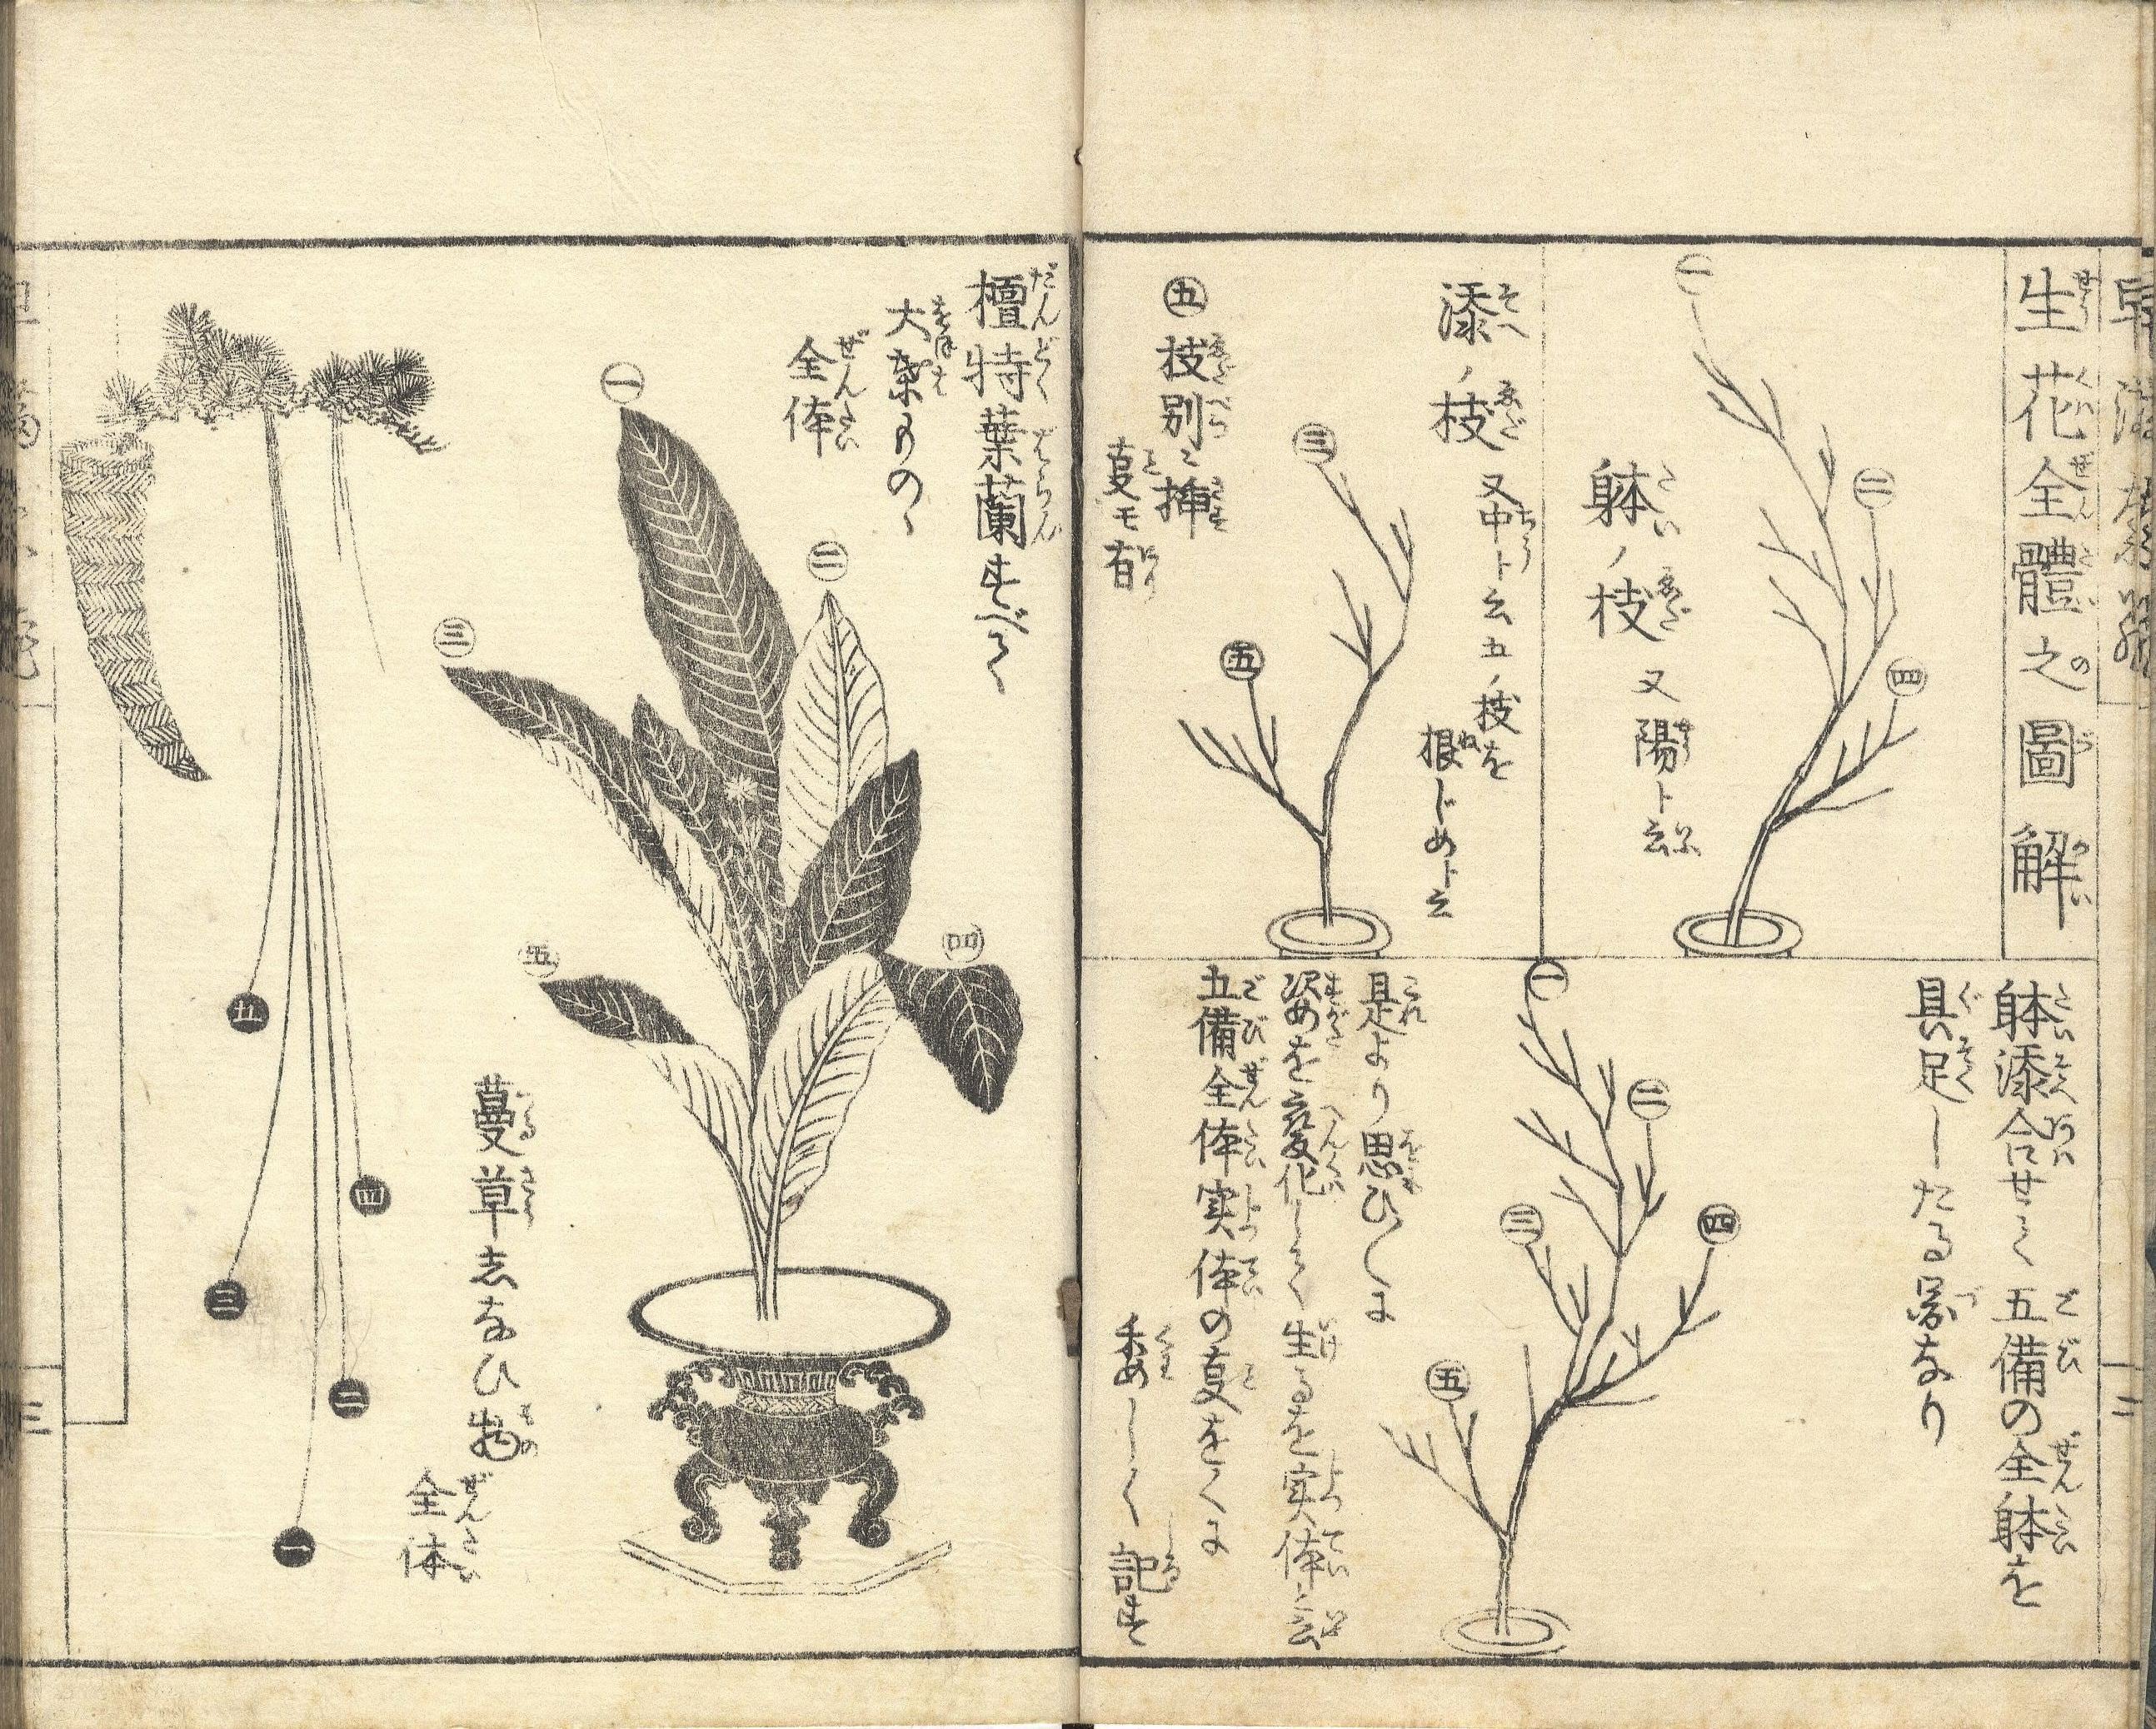 生花全體之圖解
一
二
四
躰ノ枝
又陽ト云
添ノ枝
又中ト云五ノ枝を
根じめト云
三
五
五枝別ニ挿
㕝モ有
躰添合せて五備の全躰を
具足したる圖なり
一
二
三
四
五
是より思ひ〳〵に
姿を変化して生るを実体ト云
五備全体実体の㕝をくは
しく記す
檀特葉蘭すべて
大葉もの
全体
一
二
三
四
五
蔓草志なひ物
全体
五
四
三
二
一
三
二